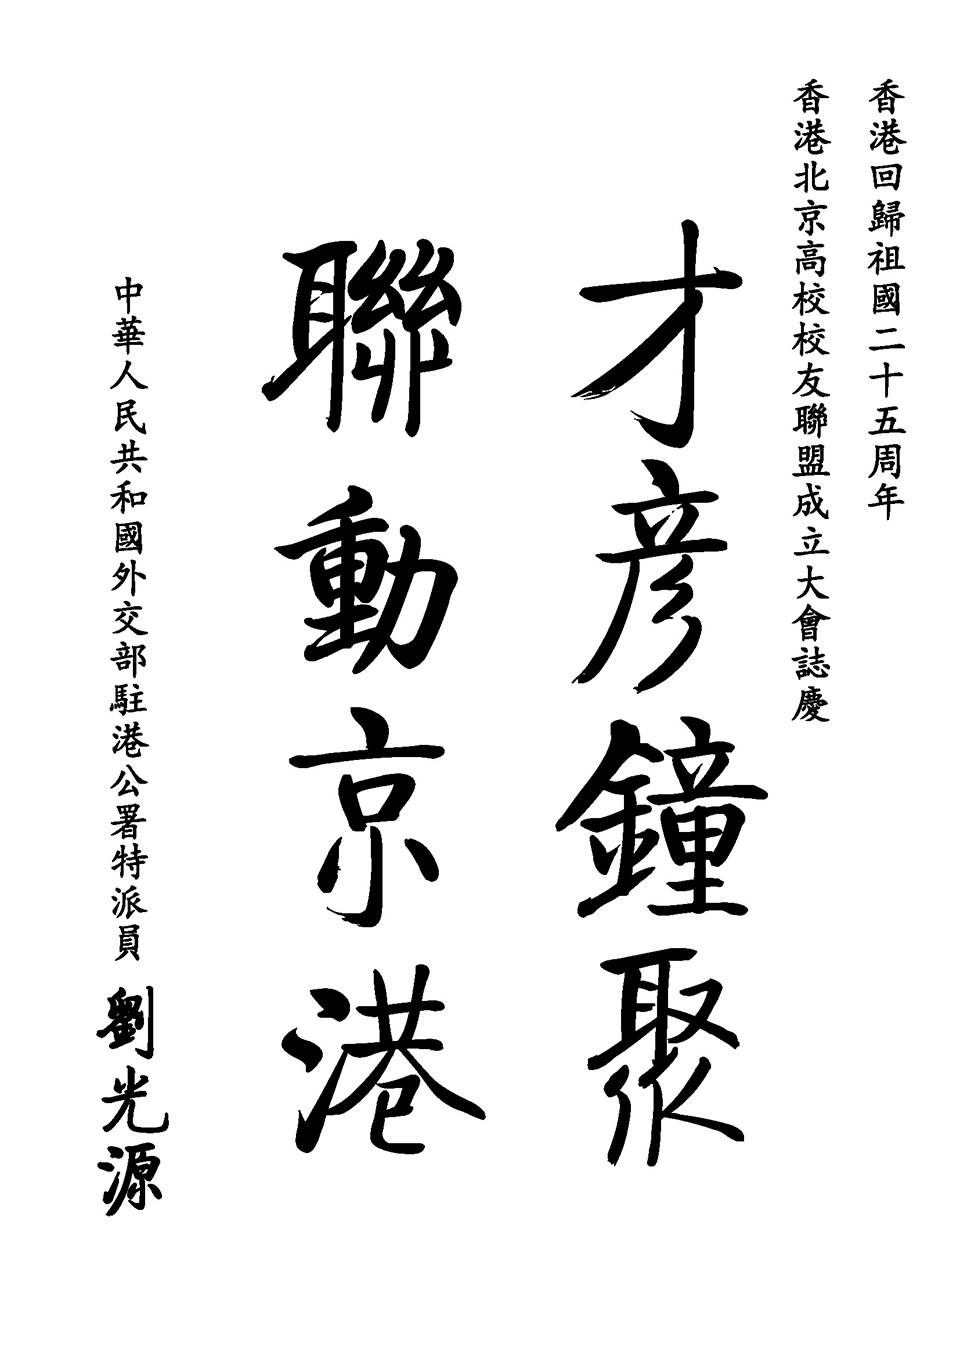 香港回歸祖國二十五周年
香港北京高校校友聯盟成立大會誌慶
才彥鐘聚
聯動京港
中華人民共和國外交部駐港公署特派員 劉光源